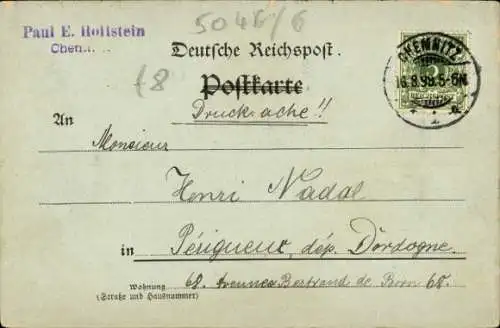 Paul E. Hollstein
Chem...
5046/6
18
Deutsche Reichspost.
Postkarte
CHEMNITZ
16.8.98.5-6N.
Drucksache!!
An
Monsieur
Henri Nadal
in Périgueux, dép. Dordogne.
Wohnung
(Straße und Hausnummer)
68. Avenue Bertrand de Born 68.